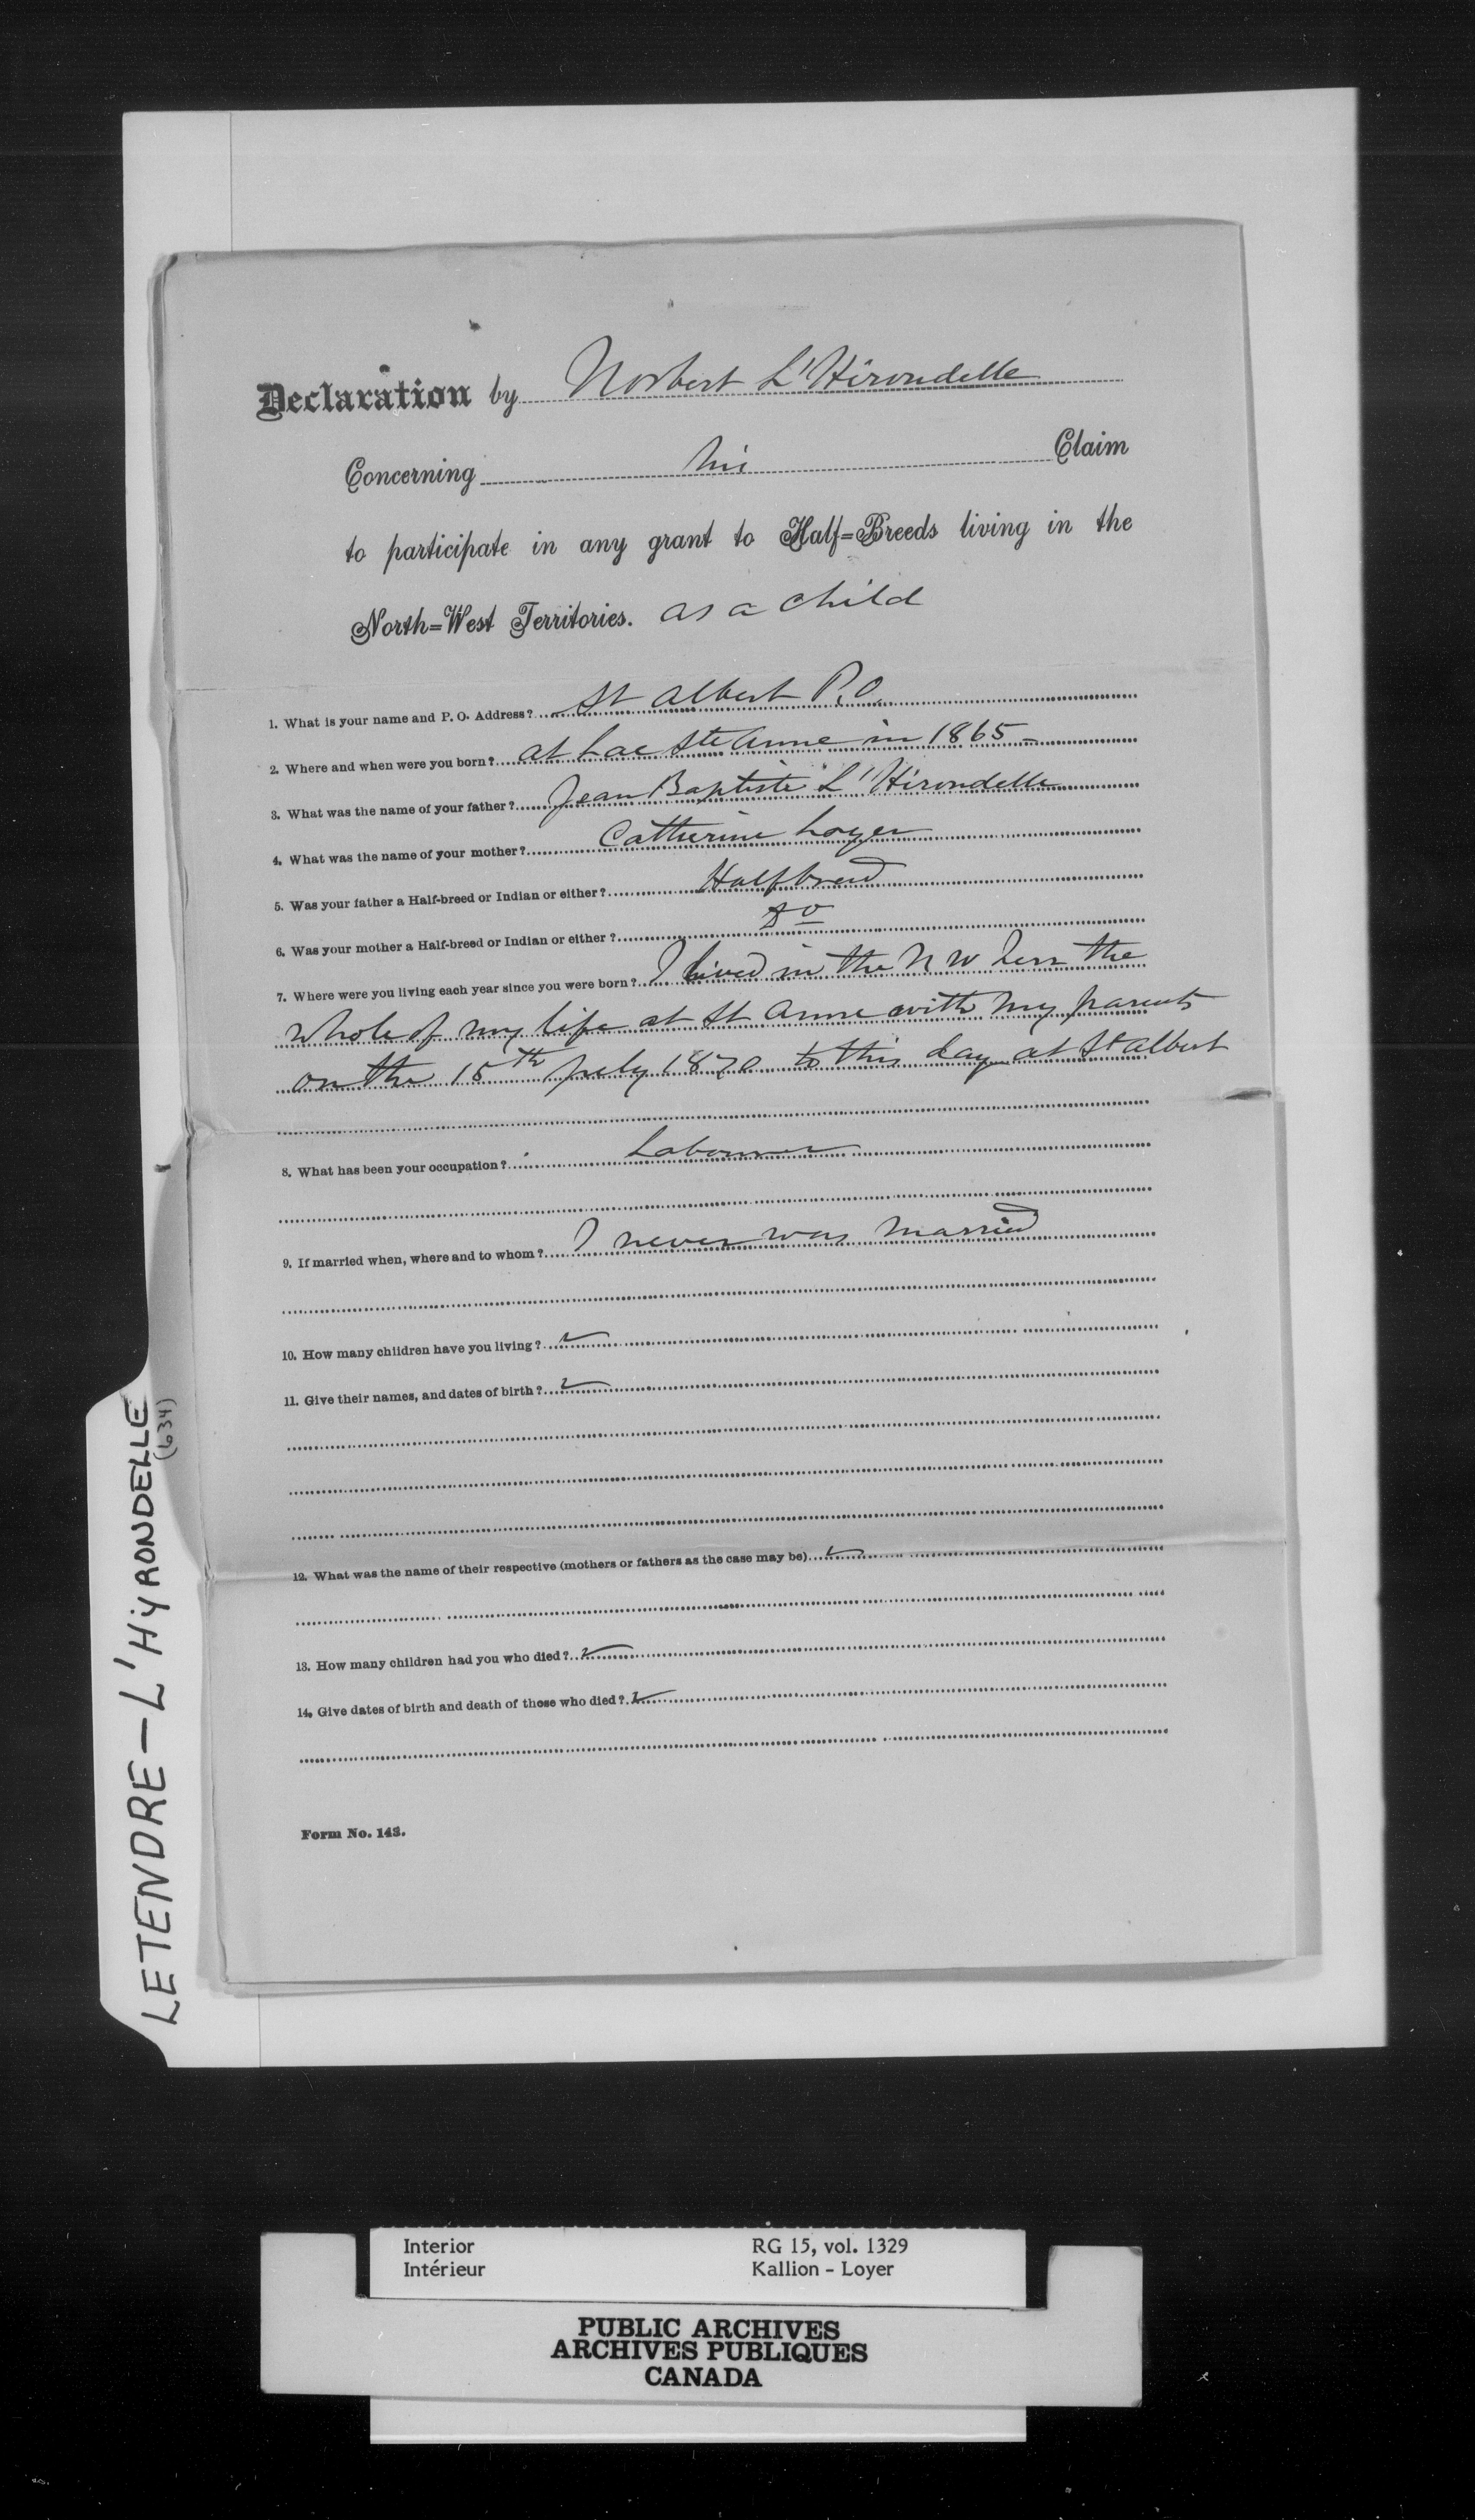 Declaration by Norbert L'Hirondelle
Concerning his Claim
to participate in any grant to Half=Breeds living in the
North=West Territories. as a child
1. What is your name and P. O. Address? St Albert P.O.
2. Where and when were you born? at Lac Ste Anne in 1865 -
3. What was the name of your father? Jean Baptiste L'Hirondelle
4. What was the name of your mother? Catherine Loyer
5. Was your father a Half-breed or Indian or either? Halfbreed
6. Was your mother a Half-breed or Indian or either? Do
7. Where were you living each year since you were born? I lived in the N W Terr the
whole of my life at St Anne with my parents
on the 15th July 1870 to this day at St Albert
8. What has been your occupation? Labourer
9. If married when, where and to whom? I never was married
10. How many children have you living? ✓
11. Give their names, and dates of birth? ✓
12. What was the name of their respective (mothers or fathers as the case may be) ✓
13. How many children had you who died? ✓
14. Give dates of birth and death of those who died? ✓
Form No. 143.
LETENDRE - L'HYRONDELLE
(634)
Interior RG 15, vol. 1329
Intérieur Kallion - Loyer
PUBLIC ARCHIVES
ARCHIVES PUBLIQUES
CANADA